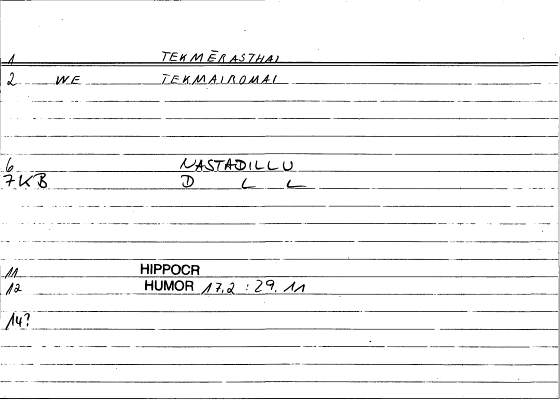 1 TEKMĒRASTHAI
2 WE TEKMAIROMAI
6 NASTADILLU
7KB D L L
11 HIPPOCR
12 HUMOR 17,2 : 29. 11
14?